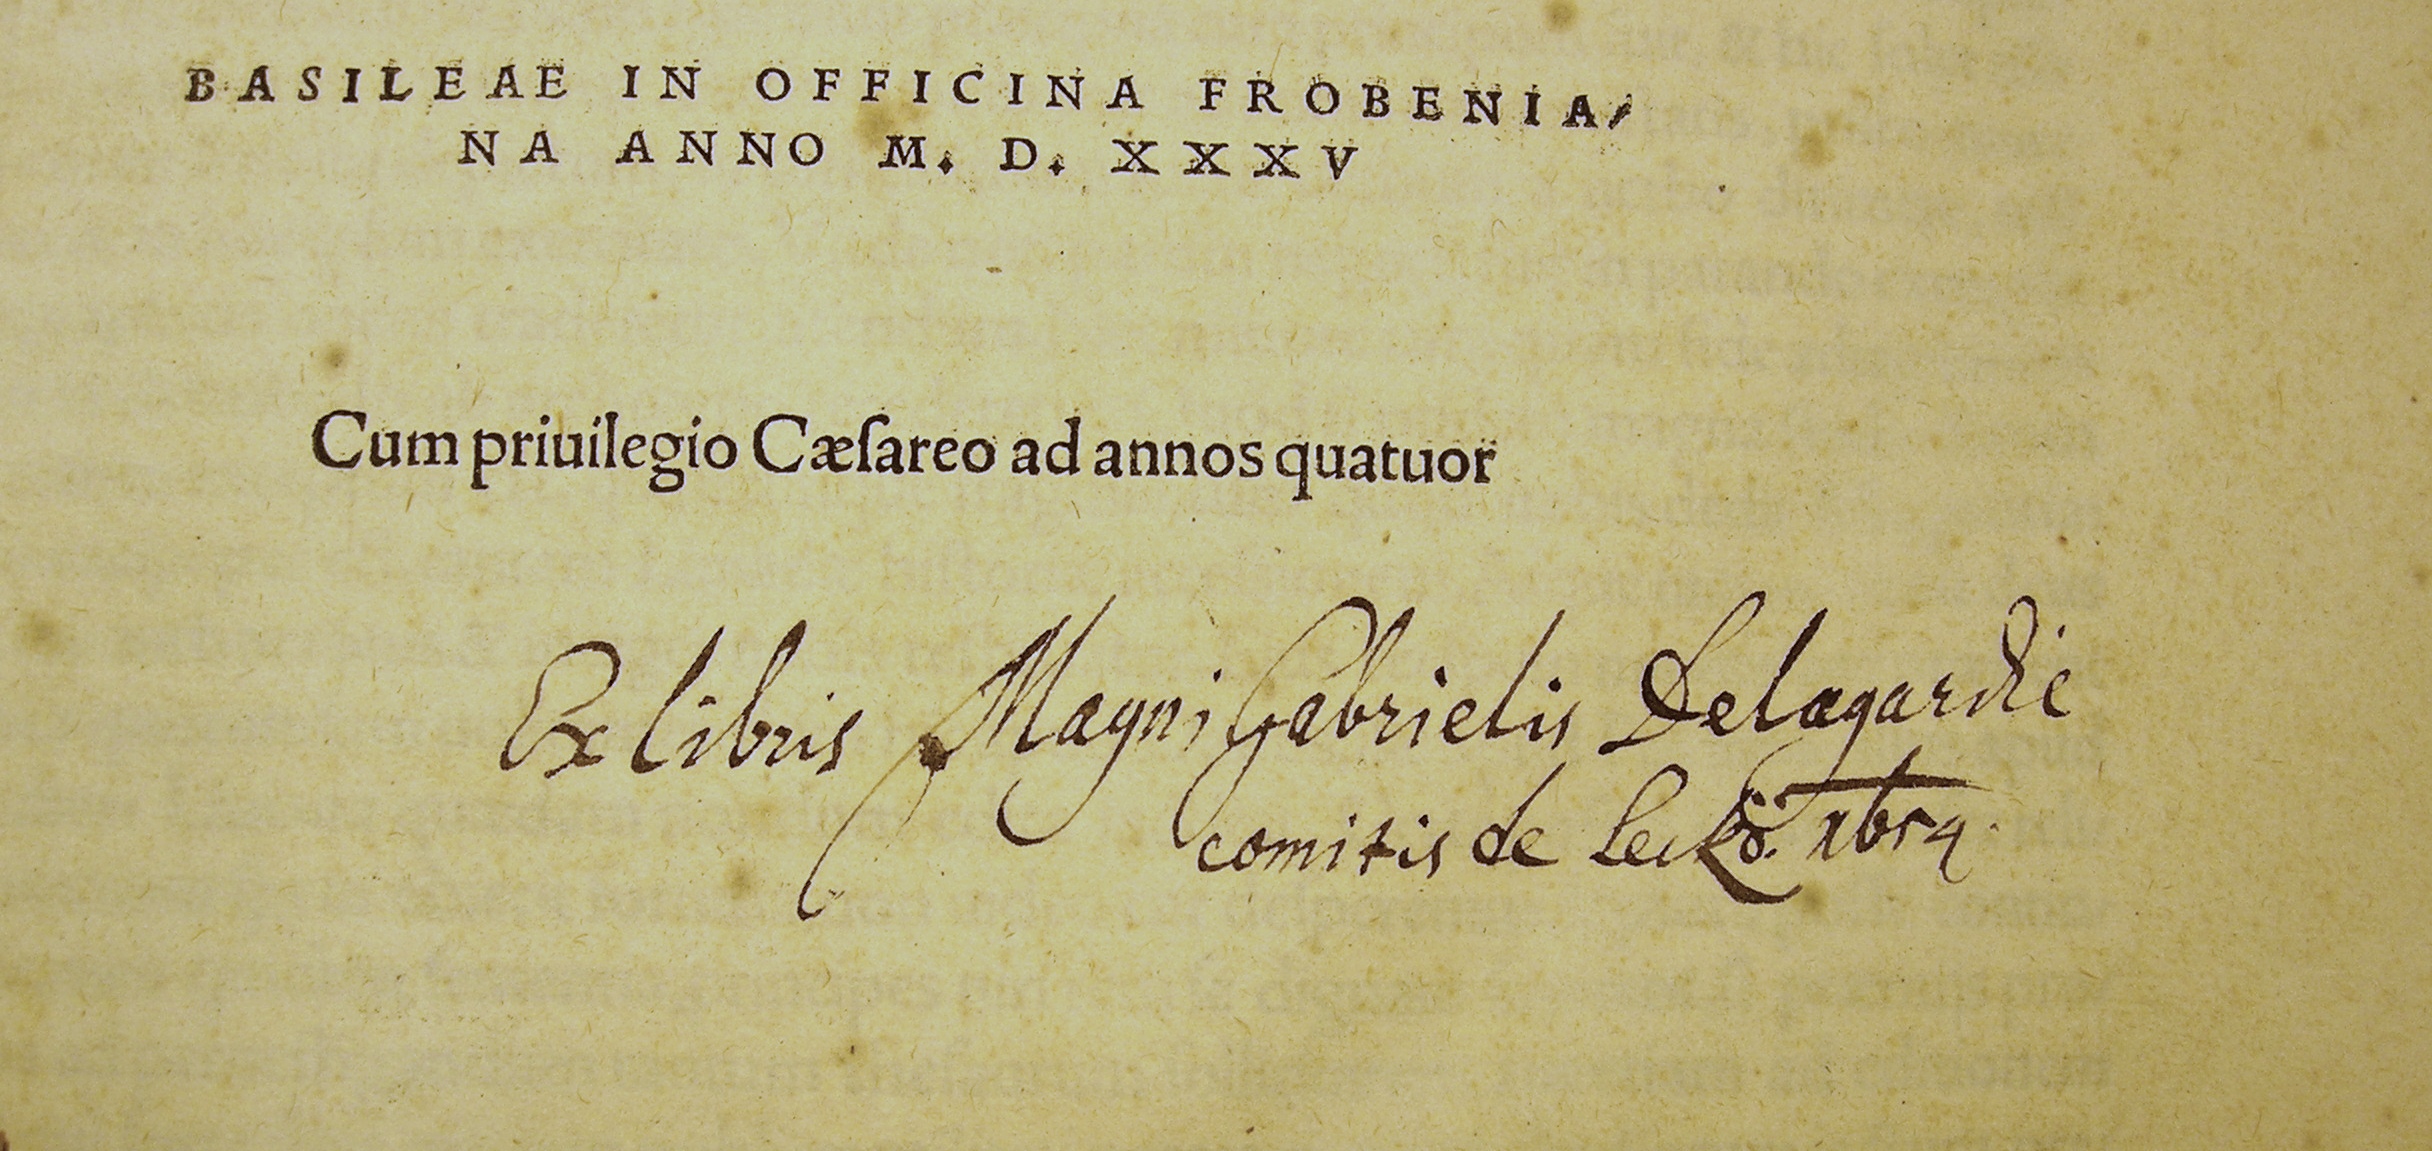 BASILEAE IN OFFICINA FROBENIA⸗
NA ANNO M. D. XXXV
Cum priuilegio Cæſareo ad annos quatuor
Ex libris Magni Gabrielis Delagardie
comitis de Leckö. 1654.